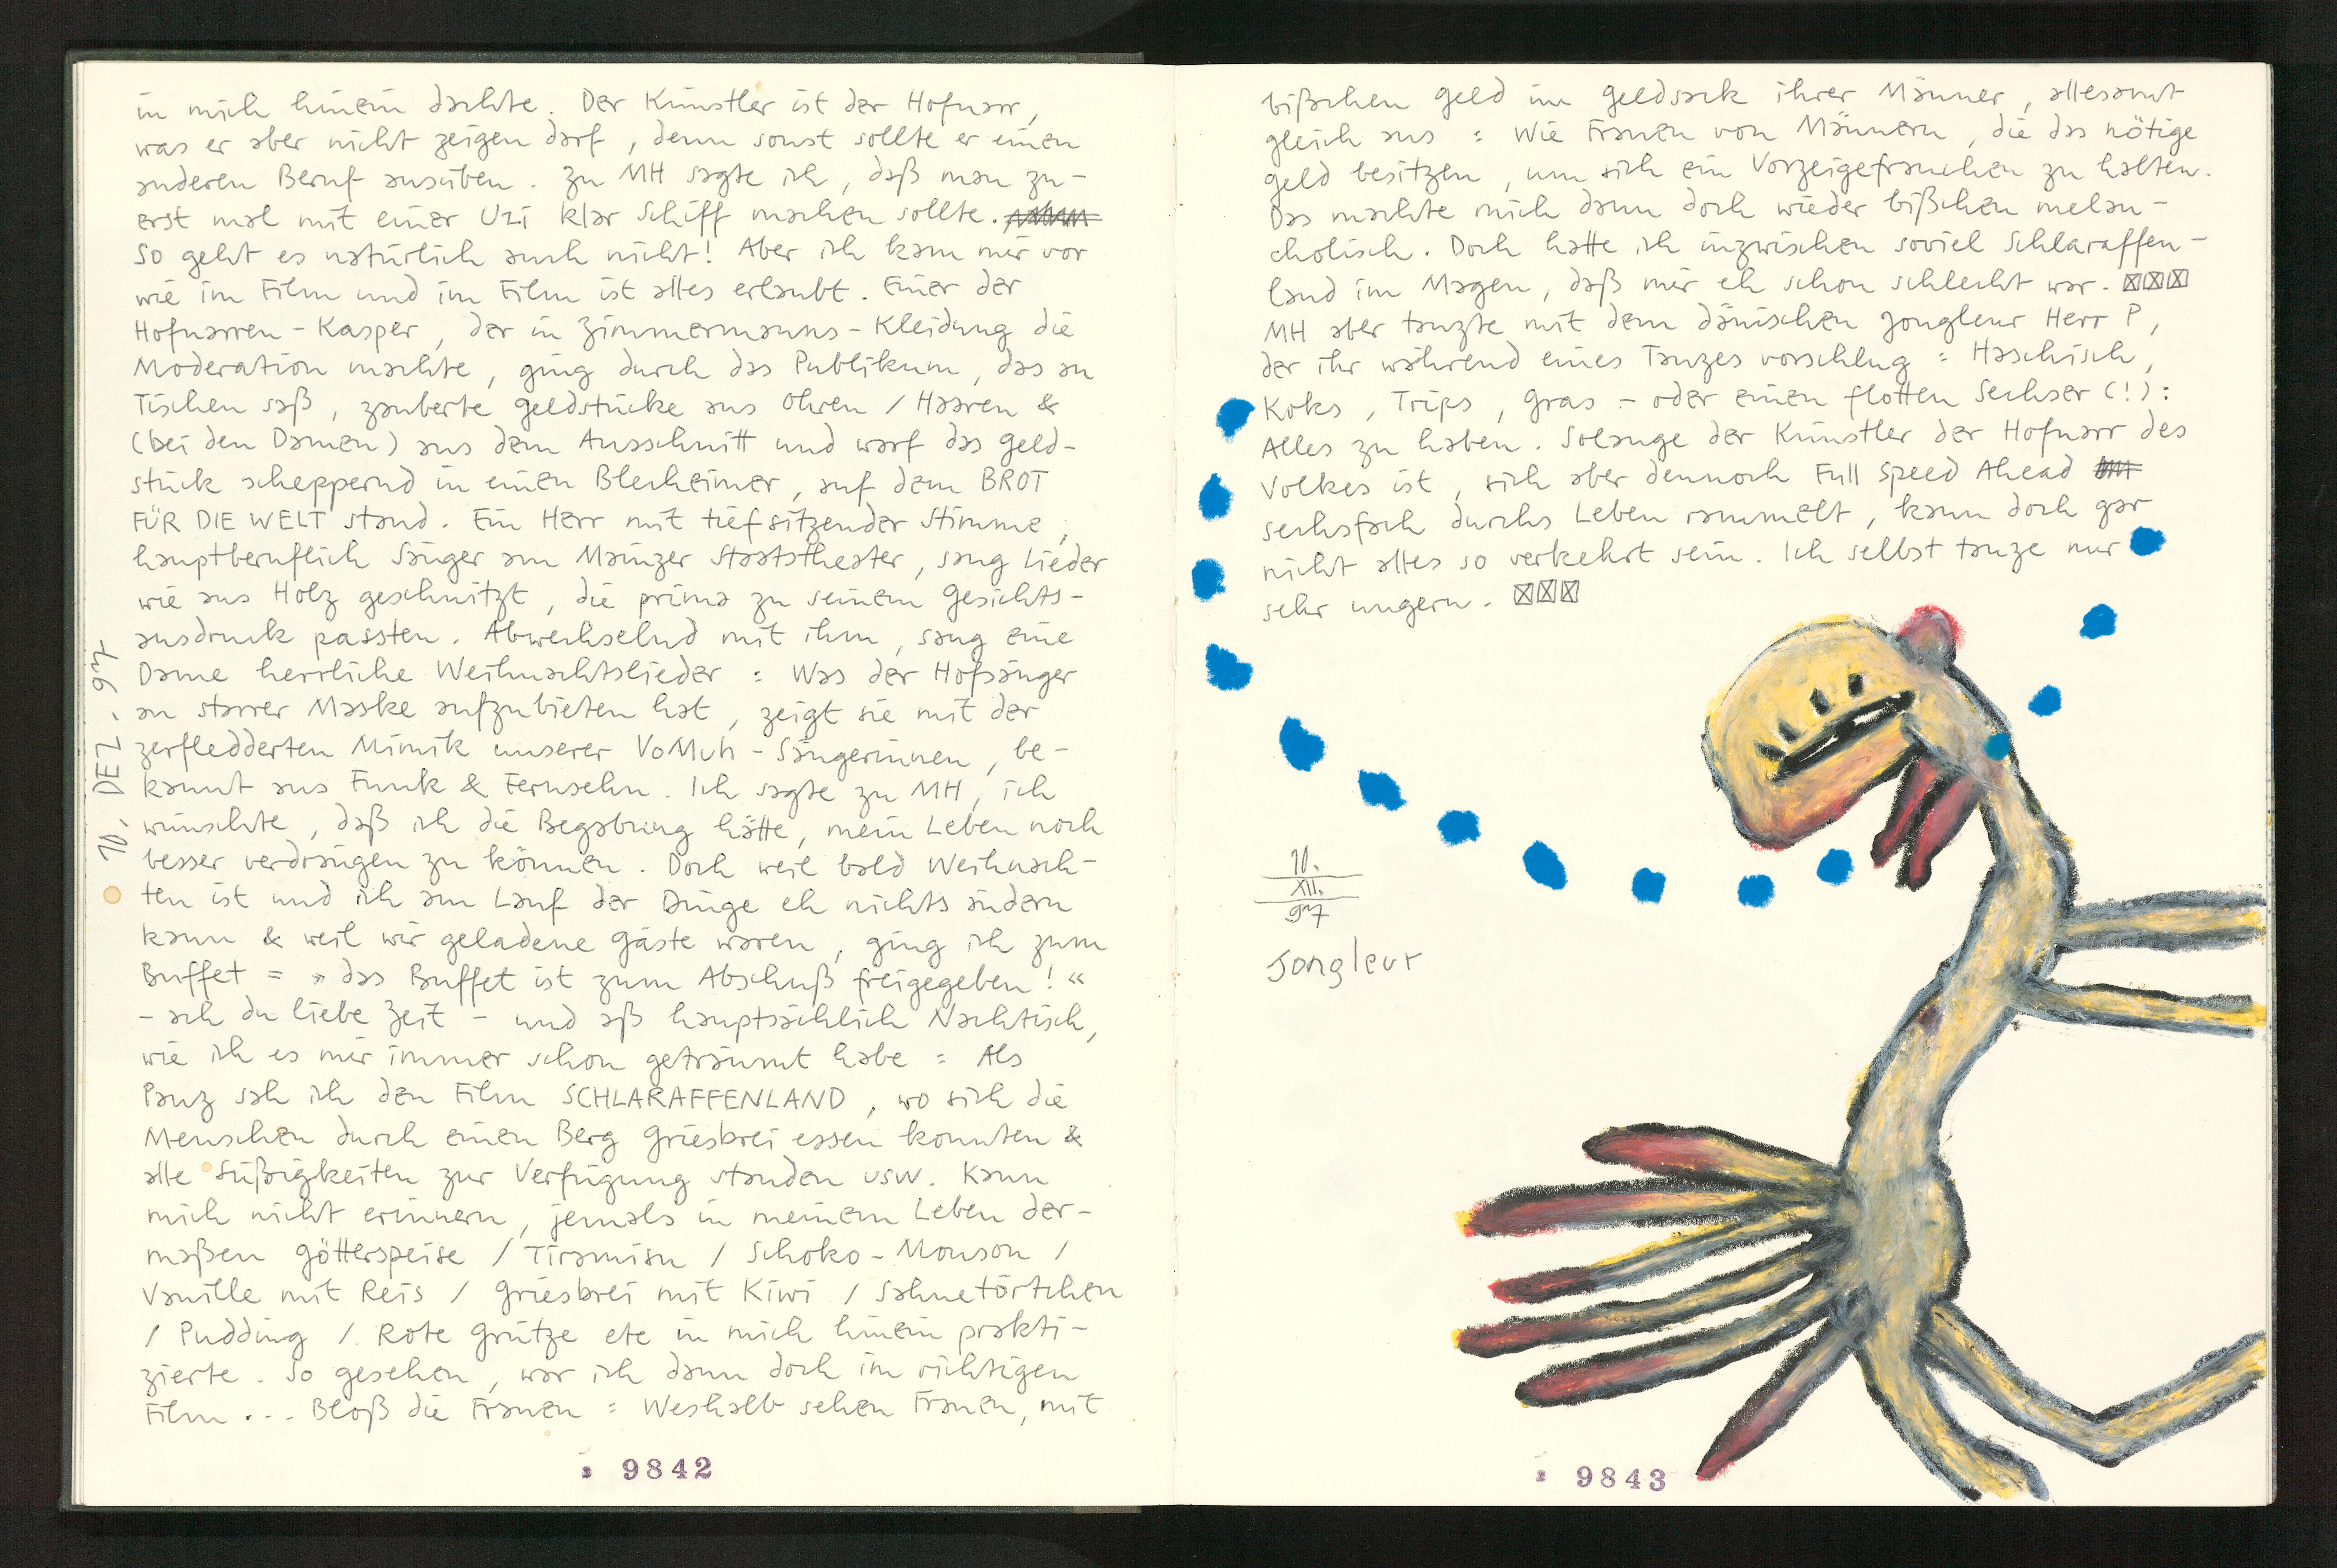 in mich hinein dachte. Der Künstler ist der Hofnarr,
was er aber nicht zeigen darf, denn sonst sollte er einen
anderen Beruf ausüben. Zu MH sagte ich, daß man zu-
erst mal mit einer Uzi klar Schiff machen sollte.
So geht es natürlich auch nicht! Aber ich kam mir vor
wie im Film und im Film ist alles erlaubt. Einer der
Hofnarren-Kasper, der in Zimmermanns-Kleidung die
Moderation machte, ging durch das Publikum, das an
Tischen saß, zauberte Geldstücke aus Ohren / Haaren &
(bei den Damen) aus dem Ausschnitt und warf das Geld-
stück scheppernd in einen Blecheimer, auf dem BROT
FÜR DIE WELT stand. Ein Herr mit tiefsitzender Stimme,
hauptberuflich Sänger am Mainzer Staatstheater, sang Lieder
wie aus Holz geschnitzt, die prima zu seinem Gesichts-
ausdruck passten. Abwechselnd mit ihm, sang eine
Dame herrliche Weihnachtslieder: Was der Hofsänger
an starrer Maske aufzubieten hat, zeigt sie mit der
zerfledderten Mimik unserer VoMuh-Sängerinnen, be-
kannt aus Funk & Fernsehn. Ich sagte zu MH, ich
wünschte, daß ich die Begabung hätte, mein Leben noch
besser verdrängen zu können. Doch weil bald Weihnach-
ten ist und ich am Lauf der Dinge eh nichts ändern
kann & weil wir geladene Gäste waren, ging ich zum
Buffet = »das Buffet ist zum Abschuß freigegeben!«
- ach du liebe Zeit - und aß hauptsächlich Nachtisch,
wie ich es mir immer schon geträumt habe: Als
Panz sah ich den Film SCHLARAFFENLAND, wo sich die
Menschen durch einen Berg Griesbrei essen konnten &
alle Süßigkeiten zur Verfügung standen usw. Kann
mich nicht erinnern, jemals in meinem Leben der-
maßen Götterspeise / Tiramisu / Schoko-Mouson /
Vanille mit Reis / Griesbrei mit Kiwi / Sahnetörtchen
/ Pudding / Rote Grütze etc in mich hinein prakti-
zierte. So gesehen, war ich dann doch im richtigen
Film... Bloß die Frauen: Weshalb sehen Frauen, mit
10. DEZ. 97
9842
bißchen Geld im Geldsack ihrer Männer, allesamt
gleich aus: Wie Frauen von Männern, die das nötige
Geld besitzen, um sich ein Vorzeigefrauchen zu halten.
Das machte mich dann doch wieder bißchen melan-
cholisch. Doch hatte ich inzwischen soviel Schlaraffen-
land im Magen, daß mir eh schon schlecht war. ☒☒☒
MH aber tanzte mit dem dänischen Jongleur Herr P,
der ihr während eines Tanzes vorschlug: Haschisch,
Koks, Trips, Gras - oder einen flotten Sechser (!):
Alles zu haben. Solange der Künstler der Hofnarr des
Volkes ist, sich aber dennoch Full Speed Ahead
sechsfach durchs Leben rammelt, kann doch gar
nicht alles so verkehrt sein. Ich selbst tanze nur
sehr ungern. ☒☒☒
10.
XII.
97
Jongleur
9843